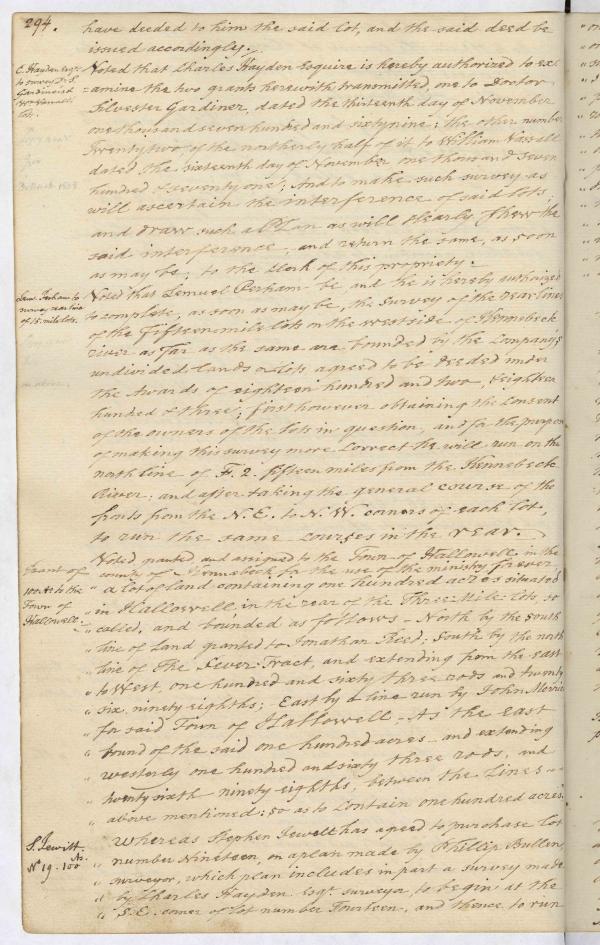 294.
have deeded to him the said lot, and the said deed be
issued accordingly.
C. Hayden Esqr.
to survey Dr. S.
Gardiner's &
Wm Vassall's
lots.
Voted that Charles Hayden Esquire is hereby authorized to ex-
amine the two grants herewith transmitted, one to Doctor
Silvester Gardiner, dated the thirteenth day of November
one thousand seven hundred and sixty nine; the other number
Twenty two of the northerly half of it to William Vassall
dated the sixteenth day of November one thousand seven
hundred & seventy one; And to make such survey as
will ascertain the interference of said lots,
and draw such a Plan as will clearly shew the
said interference, and return the same, as soon
as may be, to the Clerk of this propriety.
Leml. Perham to
survey rear line
of 15 mile lots.
Voted that Lemuel Perham be and he is hereby authorized
to complete, as soon as may be, the survey of the rear lines
of the Fifteen mile lots on the west side of Kennebeck
river as far as the same are bounded by the Company's
undivided Lands or Lots agreed to be deeded under
the Awards of eighteen hundred and two, & eighteen
hundred & three; first however obtaining the consent
of the owners of the lots in question, and for the purpose
of making this survey more correct he will run on the
north line of F. 2. fifteen miles from the Kennebeck
River; and after taking the general course of the
fronts from the N.E. to N.W. corners of each lot,
to run the same courses in the rear.
Grant of
100 As to the
Town of
Hallowell.
Voted, granted, and assigned to the Town of Hallowell, in the
county of Kennebeck for the use of the ministry forever
" a lot of land containing one hundred acres situated
" in Hallowell, in the rear of the Three Mile lots, so
" called, and bounded as follows - North by the south
" line of Land granted to Jonathan Reed; South by the north
" line of The Sever Tract, and extending from the East
" to West, one hundred and sixty three rods and twenty
" six, ninety eighths; East by a line run by John Merric
" for said Town of Hallowell - As the East
" bound of the said one hundred acres - and extending
" westerly one hundred and sixty three rods, and
" twenty sixth - ninety eighths, between the Lines -
" above mentioned; so as to contain one hundred acres.
S. Jewitt.
As.
No 19. 100
Whereas Stephen Jewett has agreed to purchase Lot
" number Nineteen, on a plan made by Phillip Bullen,
" surveyor, which plan includes in part a survey made
" by Charles Hayden Esqr. surveyor, to begin at the
" S.E. corner of lot number Fourteen, and thence to run